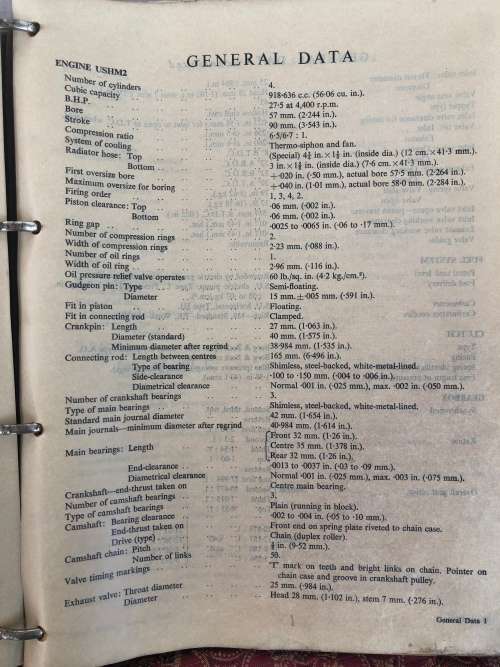 GENERAL DATA
ENGINE USHM2
Number of cylinders .. .. .. 4.
Cubic capacity .. .. .. 918·636 c.c. (56·06 cu. in.).
B.H.P. .. .. .. 27·5 at 4,400 r.p.m.
Bore .. .. .. 57 mm. (2·244 in.).
Stroke .. .. .. 90 mm. (3·543 in.).
Compression ratio .. .. .. 6·5/6·7 : 1.
System of cooling .. .. .. Thermo-siphon and fan.
Radiator hose: Top .. .. .. (Special) 4¾ in. × 1⅝ in. (inside dia.) (12 cm. × 41·3 mm.).
Bottom .. .. .. 3 in. × 1⅝ in. (inside dia.) (7·6 cm. × 41·3 mm.).
First oversize bore .. .. .. +·020 in. (·50 mm.), actual bore 57·5 mm. (2·264 in.).
Maximum oversize for boring .. .. .. +·040 in. (1·01 mm.), actual bore 58·0 mm. (2·284 in.).
Firing order .. .. .. 1, 3, 4, 2.
Piston clearance: Top .. .. .. ·06 mm. (·002 in.).
Bottom .. .. .. ·06 mm. (·002 in.).
Ring gap .. .. .. ·0025 to ·0065 in. (·06 to ·17 mm.).
Number of compression rings .. .. 2.
Width of compression rings .. .. 2·23 mm. (·088 in.).
Number of oil rings .. .. .. 1.
Width of oil ring .. .. .. 2·96 mm. (·116 in.).
Oil pressure relief valve operates .. .. 60 lb./sq. in. (4·2 kg./cm.²).
Gudgeon pin: Type .. .. .. Semi-floating.
Diameter .. .. .. 15 mm. ±·005 mm. (·591 in.).
Fit in piston .. .. .. Floating.
Fit in connecting rod .. .. .. Clamped.
Crankpin: Length .. .. .. 27 mm. (1·063 in.).
Diameter (standard) .. .. .. 40 mm. (1·575 in.).
Minimum diameter after regrind .. .. 38·984 mm. (1·535 in.).
Connecting rod: Length between centres .. .. 165 mm. (6·496 in.).
Type of bearing .. .. .. Shimless, steel-backed, white-metal-lined.
Side-clearance .. .. .. ·100 to ·150 mm. (·004 to ·006 in.).
Diametrical clearance .. .. Normal ·001 in. (·025 mm.), max. ·002 in. (·050 mm.).
Number of crankshaft bearings .. .. 3.
Type of main bearings .. .. .. Shimless, steel-backed, white-metal-lined.
Standard main journal diameter .. .. 42 mm. (1·654 in.).
Main journals—minimum diameter after regrind .. 40·984 mm. (1·614 in.).
Main bearings: Length .. .. .. Front 32 mm. (1·26 in.).
Centre 35 mm. (1·378 in.).
Rear 32 mm. (1·26 in.).
End-clearance .. .. .. ·0013 to ·0037 in. (·03 to ·09 mm.).
Diametrical clearance .. .. Normal ·001 in. (·025 mm.), max. ·003 in. (·075 mm.).
Crankshaft—end-thrust taken on .. .. Centre main bearing.
Number of camshaft bearings .. .. 3.
Type of camshaft bearings .. .. Plain (running in block).
Camshaft: Bearing clearance .. .. ·002 to ·004 in. (·05 to ·10 mm.).
End-thrust taken on .. .. Front end on spring plate riveted to chain case.
Drive (type) .. .. .. Chain (duplex roller).
Camshaft chain: Pitch .. .. .. ⅜ in. (9·52 mm.).
Number of links .. .. 50.
Valve timing markings .. .. .. 'T' mark on teeth and bright links on chain. Pointer on
chain case and groove in crankshaft pulley.
Exhaust valve: Throat diameter .. .. 25 mm. (·984 in.).
Diameter .. .. .. Head 28 mm. (1·102 in.), stem 7 mm. (·276 in.).
General Data 1